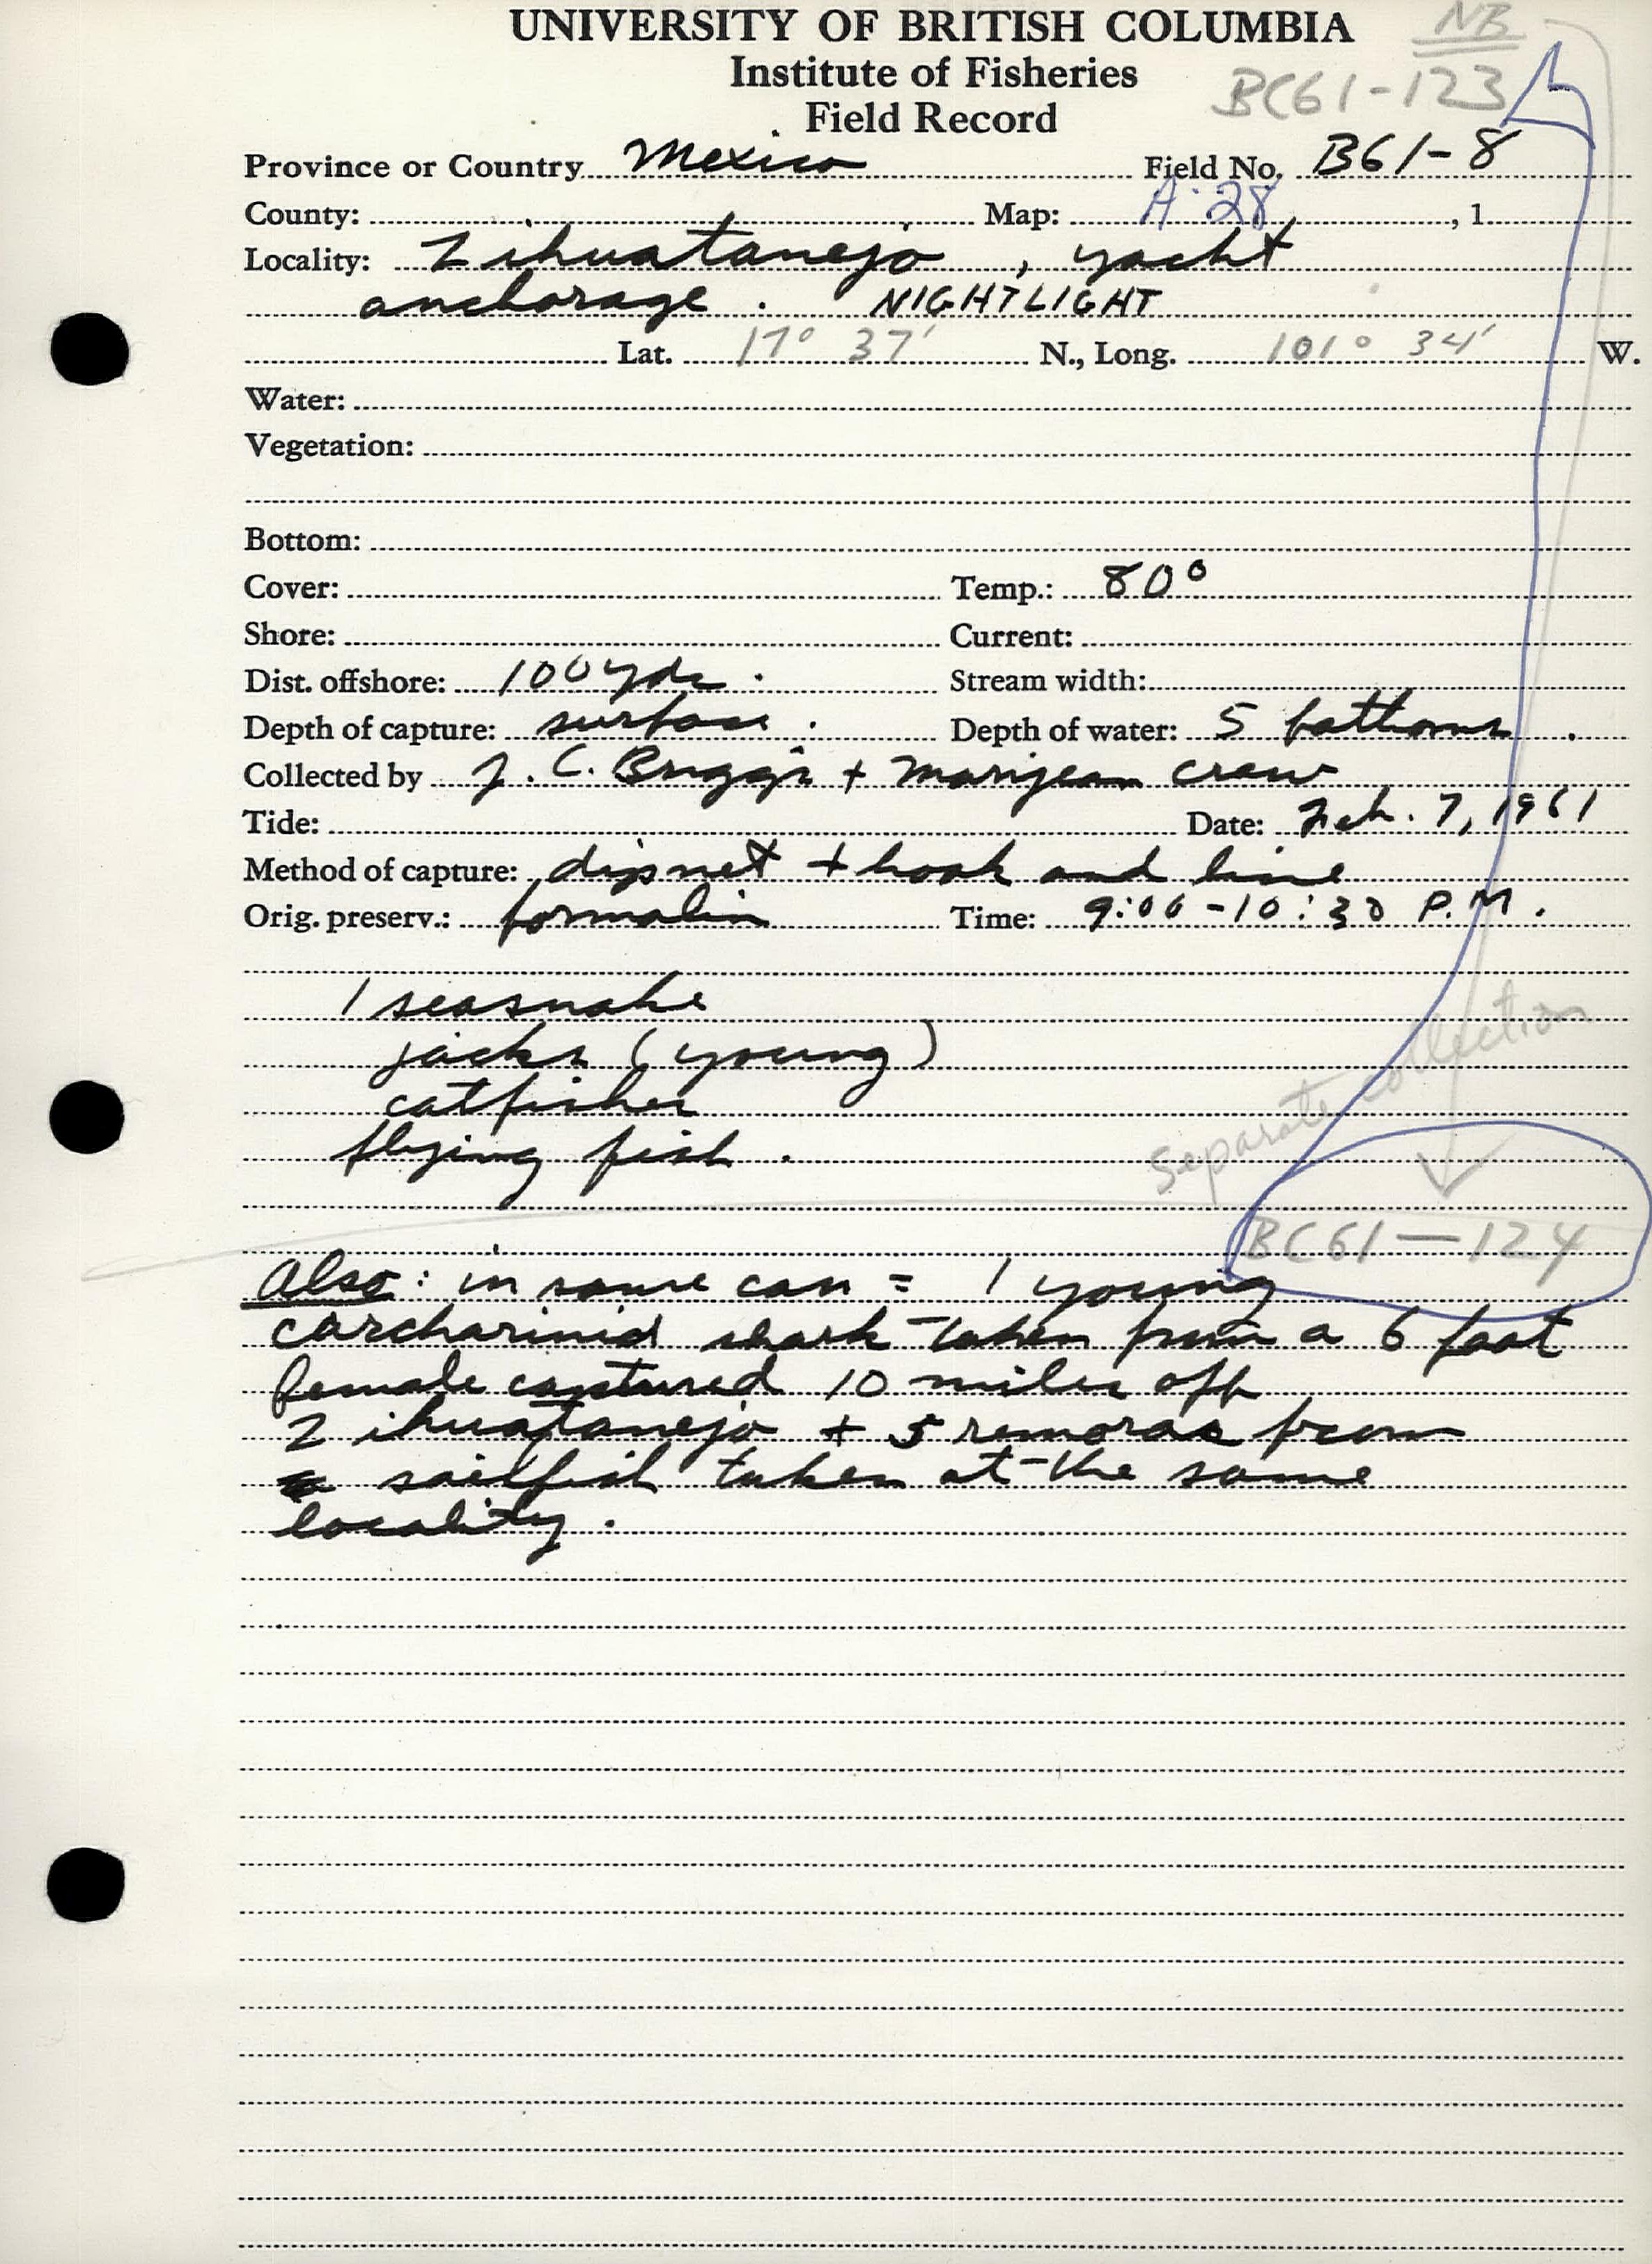 UNIVERSITY OF BRITISH COLUMBIA
NB
Institute of Fisheries
BC61-123
Field Record
Province or Country Mexico Field No. B61-8
County: Map: A-28, 1
Locality: Zihuatanejo, yacht
anchorage. NIGHTLIGHT
Lat. 17° 37' N., Long. 101° 34' W.
Water:
Vegetation:
Bottom:
Cover: Temp.: 80°
Shore: Current:
Dist. offshore: 100 yds. Stream width:
Depth of capture: surface. Depth of water: 5 fathoms.
Collected by J. C. Briggs + Marijean crew
Tide: Date: Feb. 7, 1961
Method of capture: dipnet + hook and line
Orig. preserv.: formalin Time: 9:00-10:30 P.M.
1 seasnake
jacks (young)
catfishes
flying fish.
Separate collection
BC61-124
Also: in same can = 1 young
carcharinid shark taken from a 6 foot
female captured 10 miles off
Zihuatanejo + 5 remoras from
sailfish taken at the same
locality.